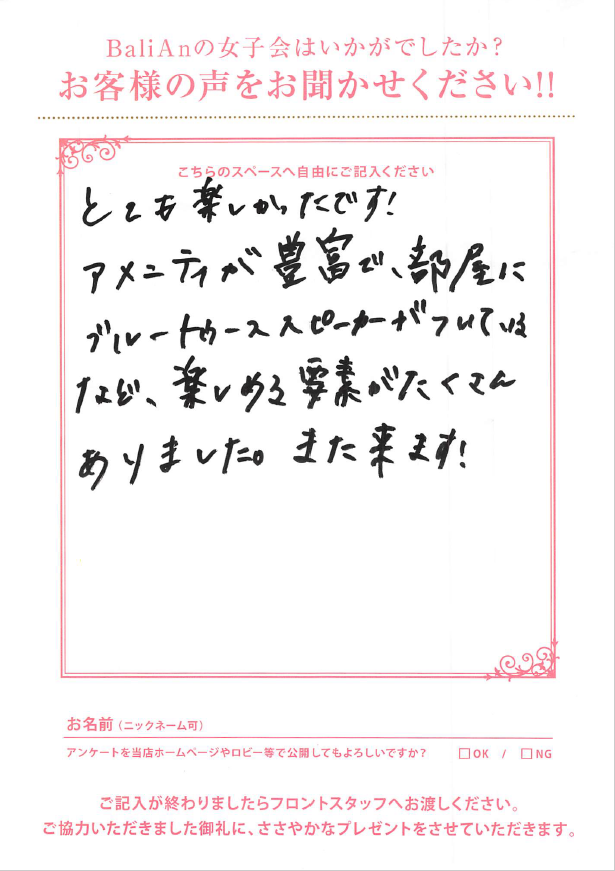 BaliAnの女子会はいかがでしたか？
お客様の声をお聞かせください!!
こちらのスペースへ自由にご記入ください
とても楽しかったです!
アメニティが豊富で、部屋に
ブルートゥーススピーカーがついている
など、楽しめる要素がたくさん
ありました。また来ます!
お名前（ニックネーム可）
アンケートを当店ホームページやロビー等で公開してもよろしいですか？ □OK / □NG
ご記入が終わりましたらフロントスタッフへお渡しください。
ご協力いただきました御礼に、ささやかなプレゼントをさせていただきます。